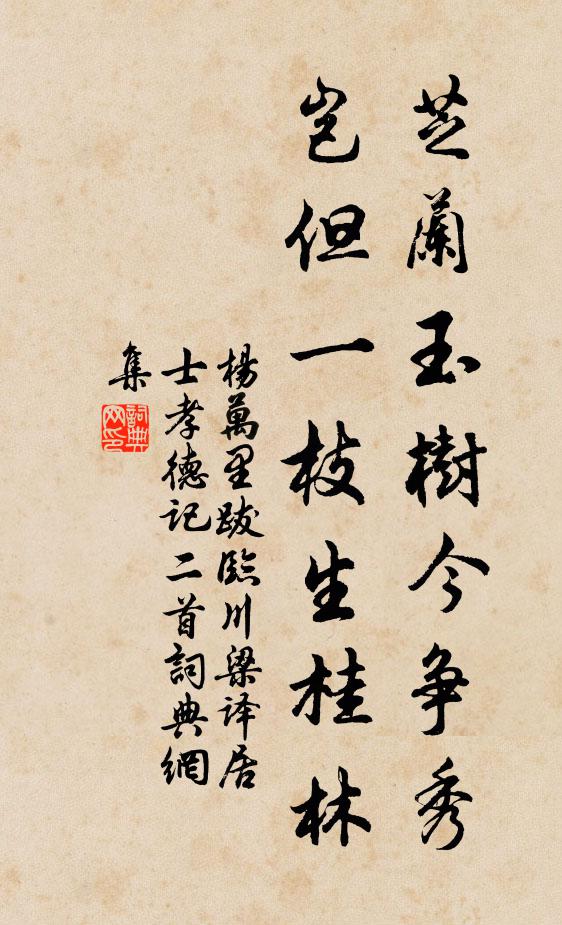 芝蘭玉樹今争秀
豈但一枝生桂林
楊萬里跋臨川梁译居
士孝德记二首詞典網
集
詞典网印